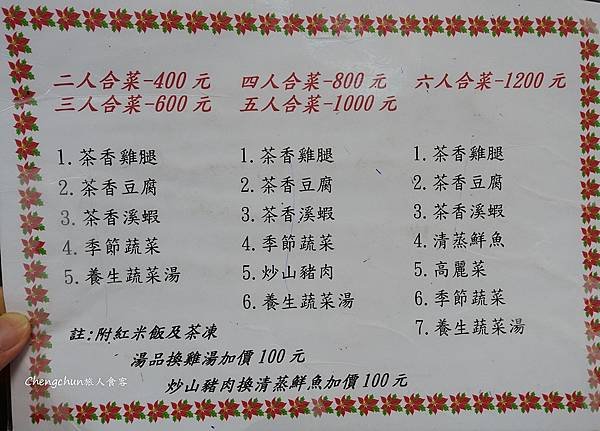 二人合菜-400 元
三人合菜-600 元
1. 茶香雞腿
2. 茶香豆腐
3. 茶香溪蝦
4. 季節蔬菜
5. 養生蔬菜湯
四人合菜-800 元
五人合菜-1000 元
1. 茶香雞腿
2. 茶香豆腐
3. 茶香溪蝦
4. 季節蔬菜
5. 炒山豬肉
6. 養生蔬菜湯
六人合菜-1200 元
1. 茶香雞腿
2. 茶香豆腐
3. 茶香溪蝦
4. 清蒸鮮魚
5. 高麗菜
6. 季節蔬菜
7. 養生蔬菜湯
註:附紅米飯及茶凍
湯品換雞湯加價 100 元
炒山豬肉換清蒸鮮魚加價 100 元
Chengchun旅人食客